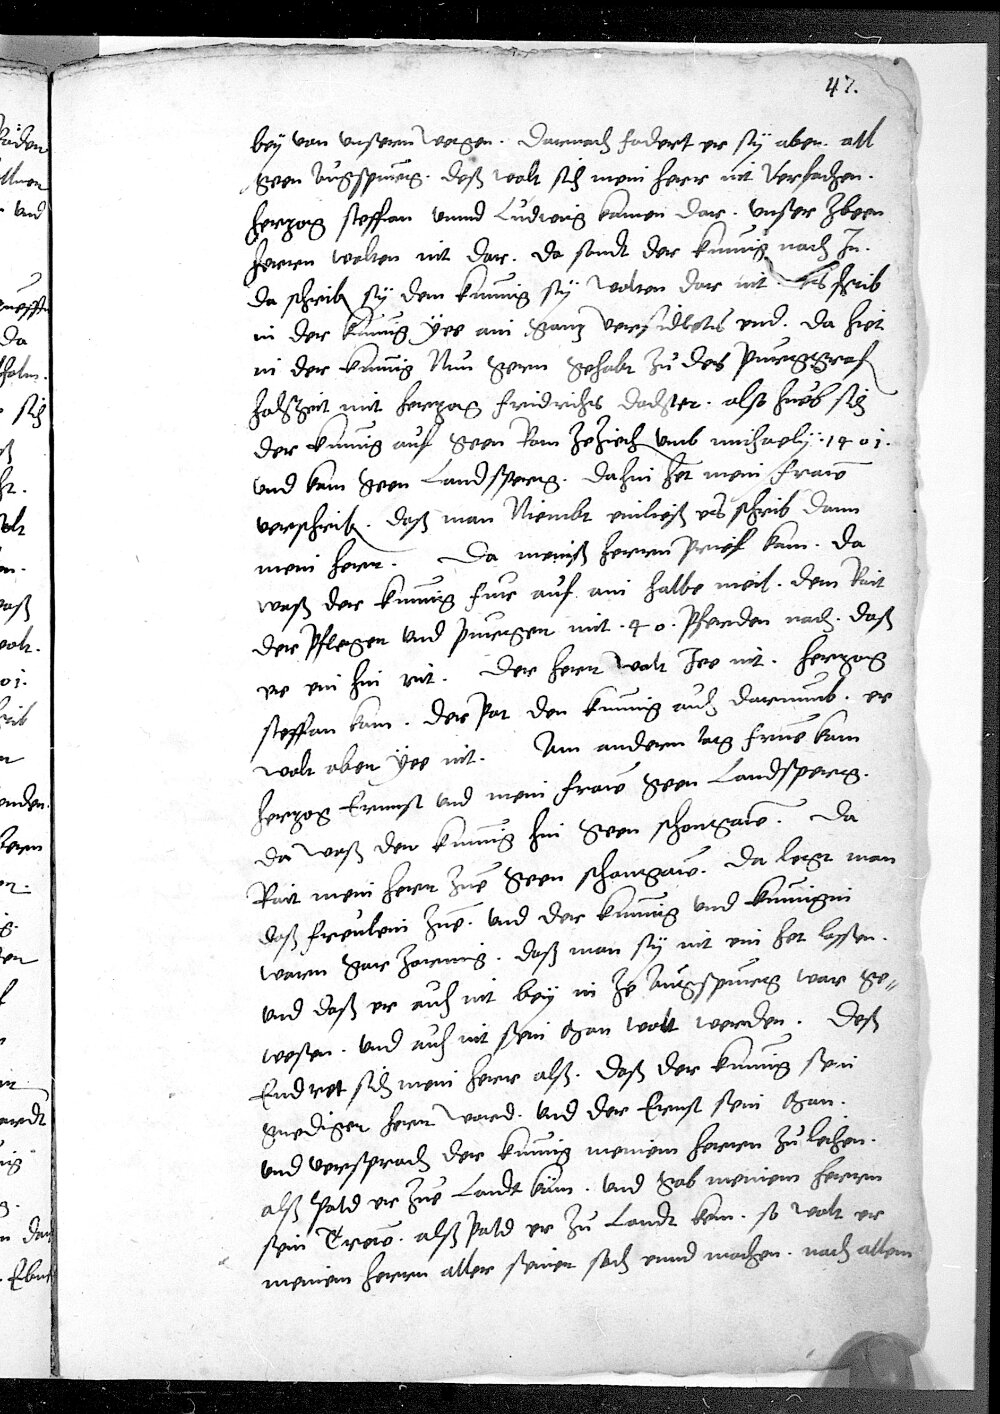 47.
bey von unsern wegen. Darnach fodert er sÿ aber all
geen Augspurg. deß wolt sich mein herr nit versachen.
herzog steffan unnd Ludwig kamen dar. unser zween
herren wolten nit dar. da sandt der kunnig nach In.
da schrib sÿ dem kunnig sÿ wolten dar nit. als schrib
in der kunnig ÿee ain ganz end. da hiet
in der kunnig Nun gern gehabt zu des purggraf
hochzeit mit herzog fridrichs dochter. also hueb sich
der kunnig auf geen Rom zeziech umb michaely. 1401.
und kam geen Landsperg. dahin het mein fraw
verschrib. daß man Niembt einließ es schrib dann
mein herr. Da meinß herren prief kam. da
waß der kunnig fur auf ain halbe meil. dem Rait
der pfleger und purger mit .40. pferden nach. daß
er ein hin rit. Der herr wolt Jee nit. herzog
steffan kam. der pat den kunnig auch darumb. er
wolt aber ÿee nit. Am andern tag frue kam
herzog Ernnst und mein fraw geen Landsperg.
da waß der kunnig hin geen schongaw. Da
Rait mein herr zue geen schongaw. da legt man
daß freulein zue. und der kunnig und kunnigin
waren gar zornnig. daß man sÿ nit ein het lassen.
und daß er auch nit bey in ze Augspurg war ge„
wesen. und auch nit sein man wolt werden. Deß
Endret sich mein herr alß. daß der kunnig sein
gnediger herr ward. und der Ernst sein man.
und versprach der kunnig meinem herren zu lechen.
alß pald er zue Landt käm. und gab meinem herren
sein Trew. alß pald er zu Landt kem. so wolt er
meinem herren aller seiner sach ennd machen. nach allem